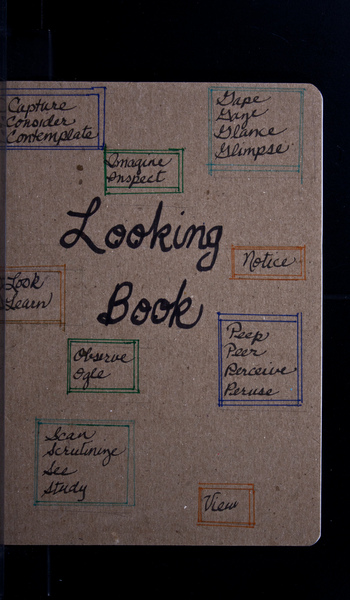 Capture
Consider
Contemplate
Gape
Gaze
Glance
Glimpse
Imagine
Inspect
Looking
Notice
Look
Learn
Book
Observe
Ogle
Peep
Peer
Perceive
Peruse
Scan
Scrutinize
See
Study
View